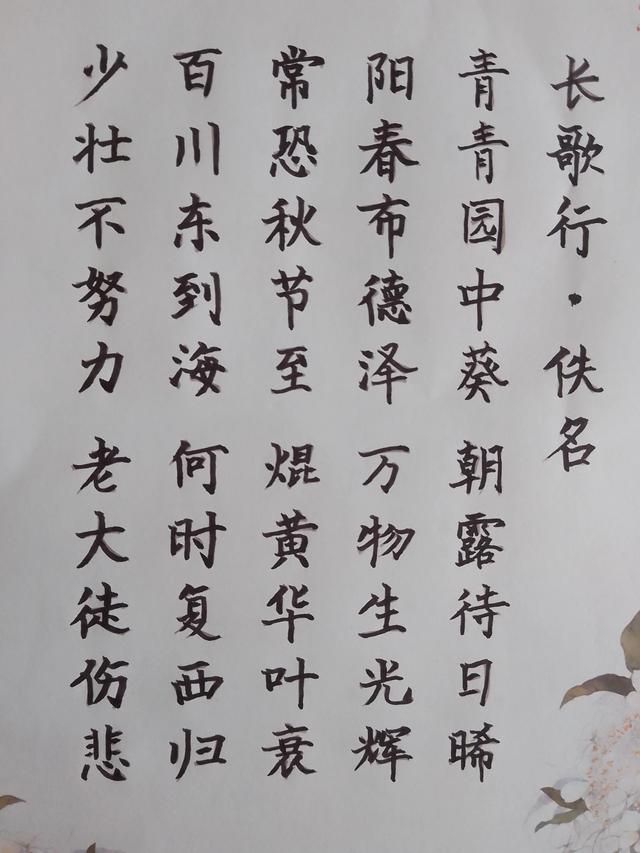 长歌行·佚名
青青园中葵 朝露待日晞
阳春布德泽 万物生光辉
常恐秋节至 焜黄华叶衰
百川东到海 何时复西归
少壮不努力 老大徒伤悲